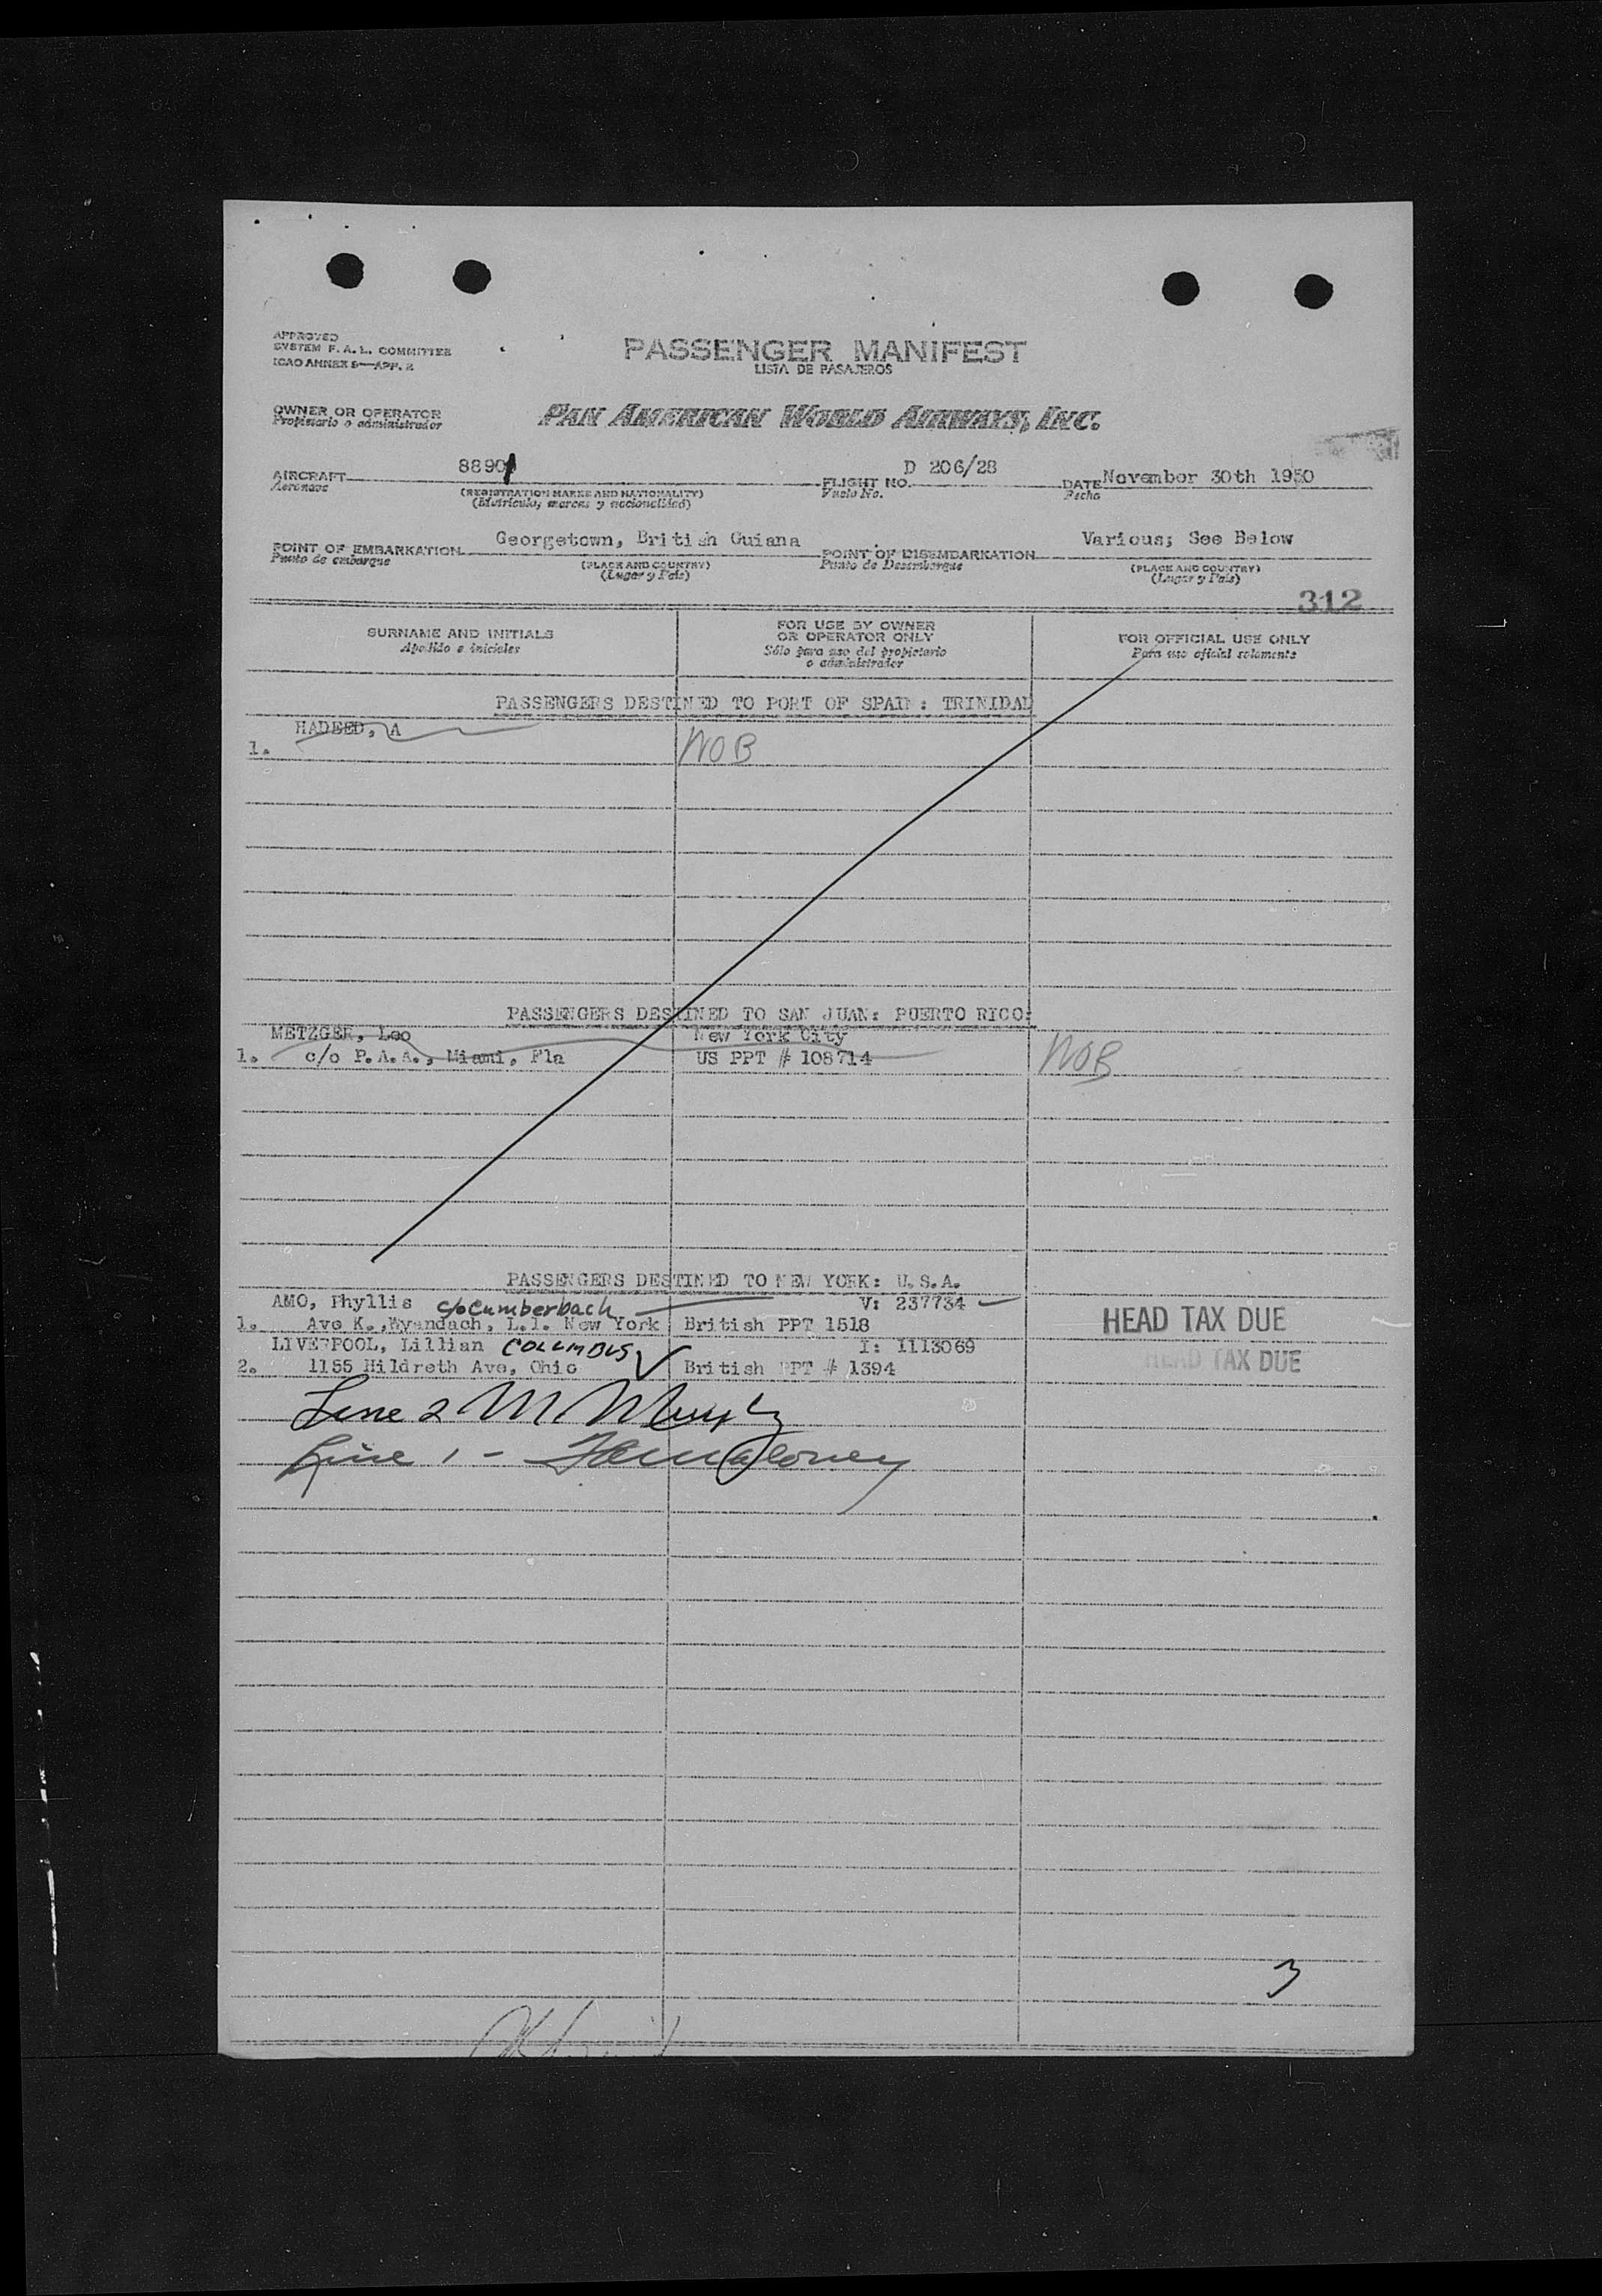 APPROVED
SYSTEM F.A.L. COMMITTEE
ICAO ANNEX 9—APP. 2
PASSENGER MANIFEST
LISTA DE PASAJEROS
OWNER OR OPERATOR
Propietario o administrador
PAN AMERICAN WORLD AIRWAYS, INC.
AIRCRAFT 88901 FLIGHT NO. D 206/28 DATE November 30th 1950
Aeronave (REGISTRATION MARKS AND NATIONALITY) Vuelo No. Fecha
(Matrícula, marcas y nacionalidad)
POINT OF EMBARKATION Georgetown, British Guiana POINT OF DISEMBARKATION Various; See Below
Punto de embarque (PLACE AND COUNTRY) Punto de Desembarque (PLACE AND COUNTRY)
(Lugar y País) (Lugar y País)
312
SURNAME AND INITIALS FOR USE BY OWNER OR OPERATOR ONLY FOR OFFICIAL USE ONLY
Apellido e iniciales Sólo para uso del propietario o administrador Para uso oficial solamente
PASSENGERS DESTINED TO PORT OF SPAIN: TRINIDAD
HADEED, A
1. NOB
PASSENGERS DESTINED TO SAN JUAN: PUERTO RICO:
METZGER, Leo New York City
1. c/o P.A.A., Miami, Fla US PPT # 108714 NOB
PASSENGERS DESTINED TO NEW YORK: U.S.A.
AMO, Phyllis c/o Cumberbach V: 237734
1. Ave K., Wyandach, L.I. New York British PPT 1518 HEAD TAX DUE
LIVERPOOL, Lillian COLUMBUS I: 1113069
2. 1155 Hildreth Ave, Ohio British PPT # 1394 HEAD TAX DUE
Line 2 M Murphy
Line 1 - Maloney
3